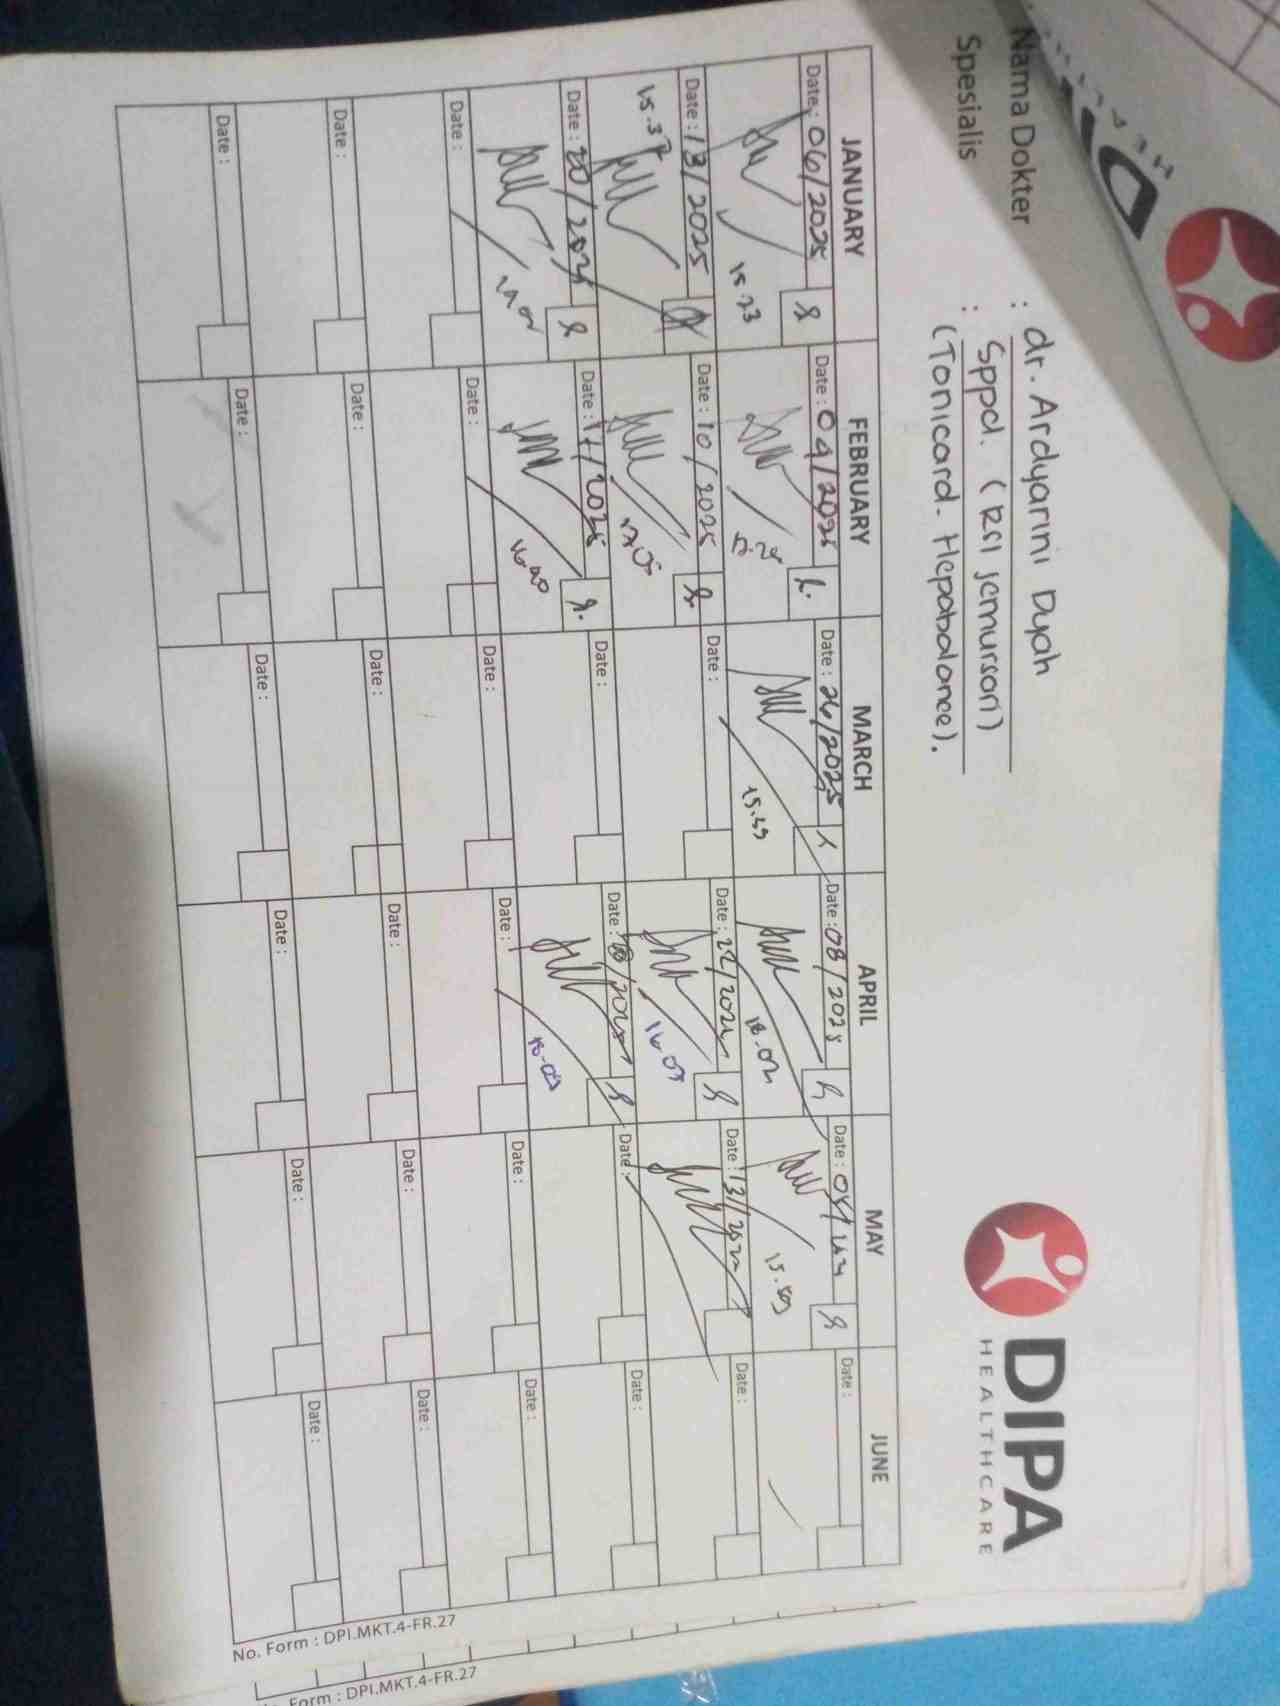 DIPA
HEALTHCARE
Nama Dokter : dr. Ardyarini Dyah
Spesialis : Sppd. (RSI Jemursari)
(Tonicard. Hepabalance).
JANUARY FEBRUARY MARCH APRIL MAY JUNE
Date: 06/2025 Date: 04/2025 Date: 26/2025 Date: 08/2025 Date: Date:
15.23 15.49 18.02 15.59
Date: 13/2025 Date: 10/2025 Date: Date: 22/2025 Date: 13/ Date:
15.37 17.05 16.03
Date: 20/2025 Date: 17/2025 Date: Date: /2025 Date: Date:
18.03
Date: Date: Date: Date: Date: Date:
Date: Date: Date: Date: Date: Date:
Date: Date: Date: Date: Date: Date:
No. Form : DPI.MKT.4-FR.27
Form : DPI.MKT.4-FR.27